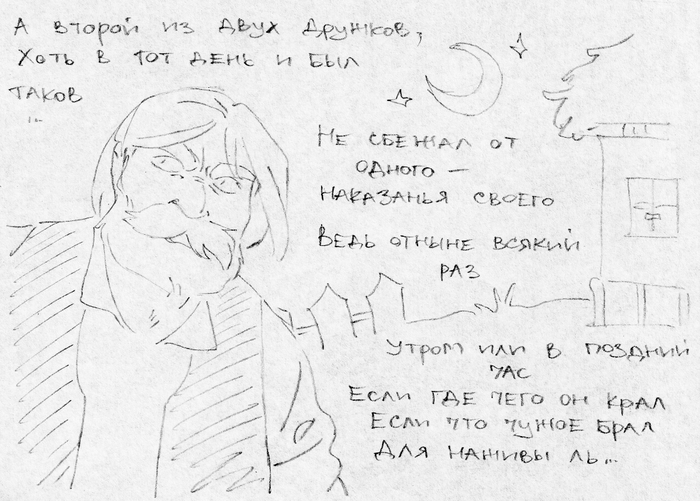 А второй из двух дружков,
Хоть в тот день и был
таков
...
Не сбежал от
одного —
наказанья своего
Ведь отныне всякий
раз
Утром или в поздний
час
Если где чего он крал
Если что чужое брал
Для наживы ль...